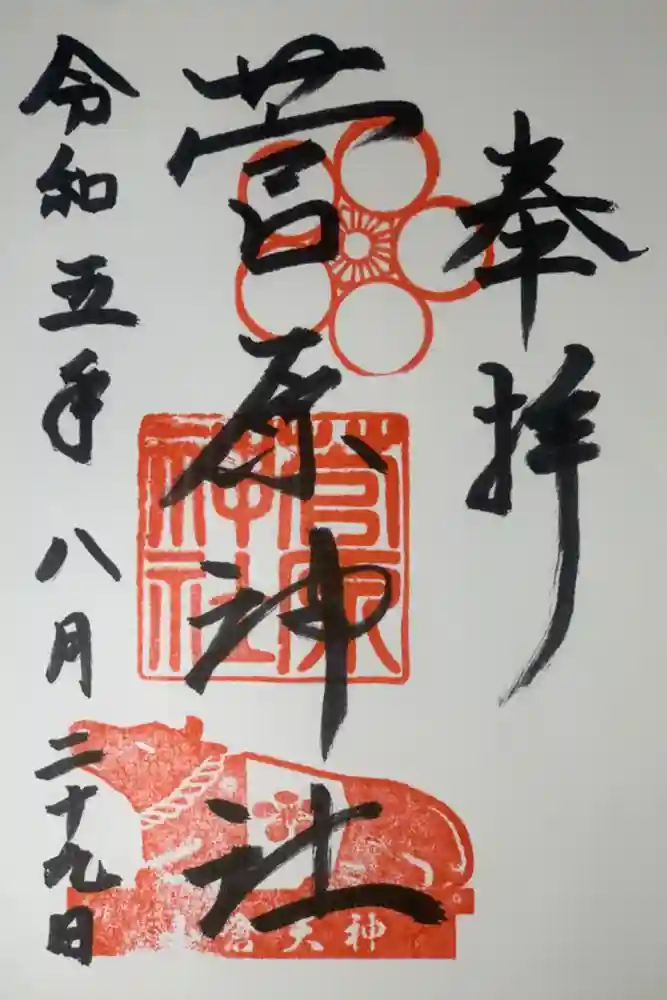 奉拝
菅原神社
令和五年八月二十九日
菅原
神社
倉天神